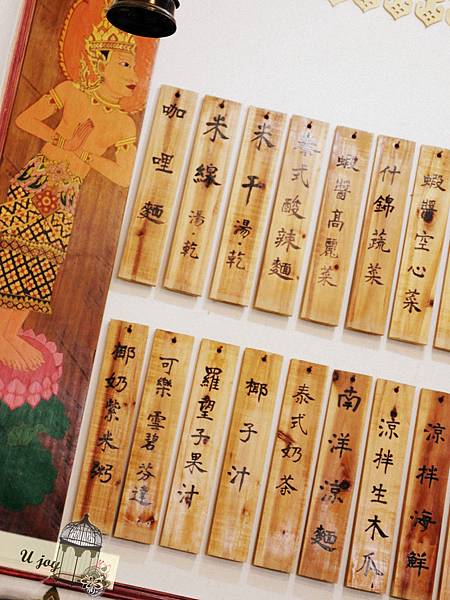 咖哩麵
米線 湯·乾
米干 湯·乾
泰式酸辣麵
蝦醬高麗菜
什錦蔬菜
蝦醬空心菜
椰奶紫米粥
可樂 雪碧 芬達
羅望子果汁
椰子汁
泰式奶茶
南洋涼麵
涼拌生木瓜
涼拌海鮮
U jog